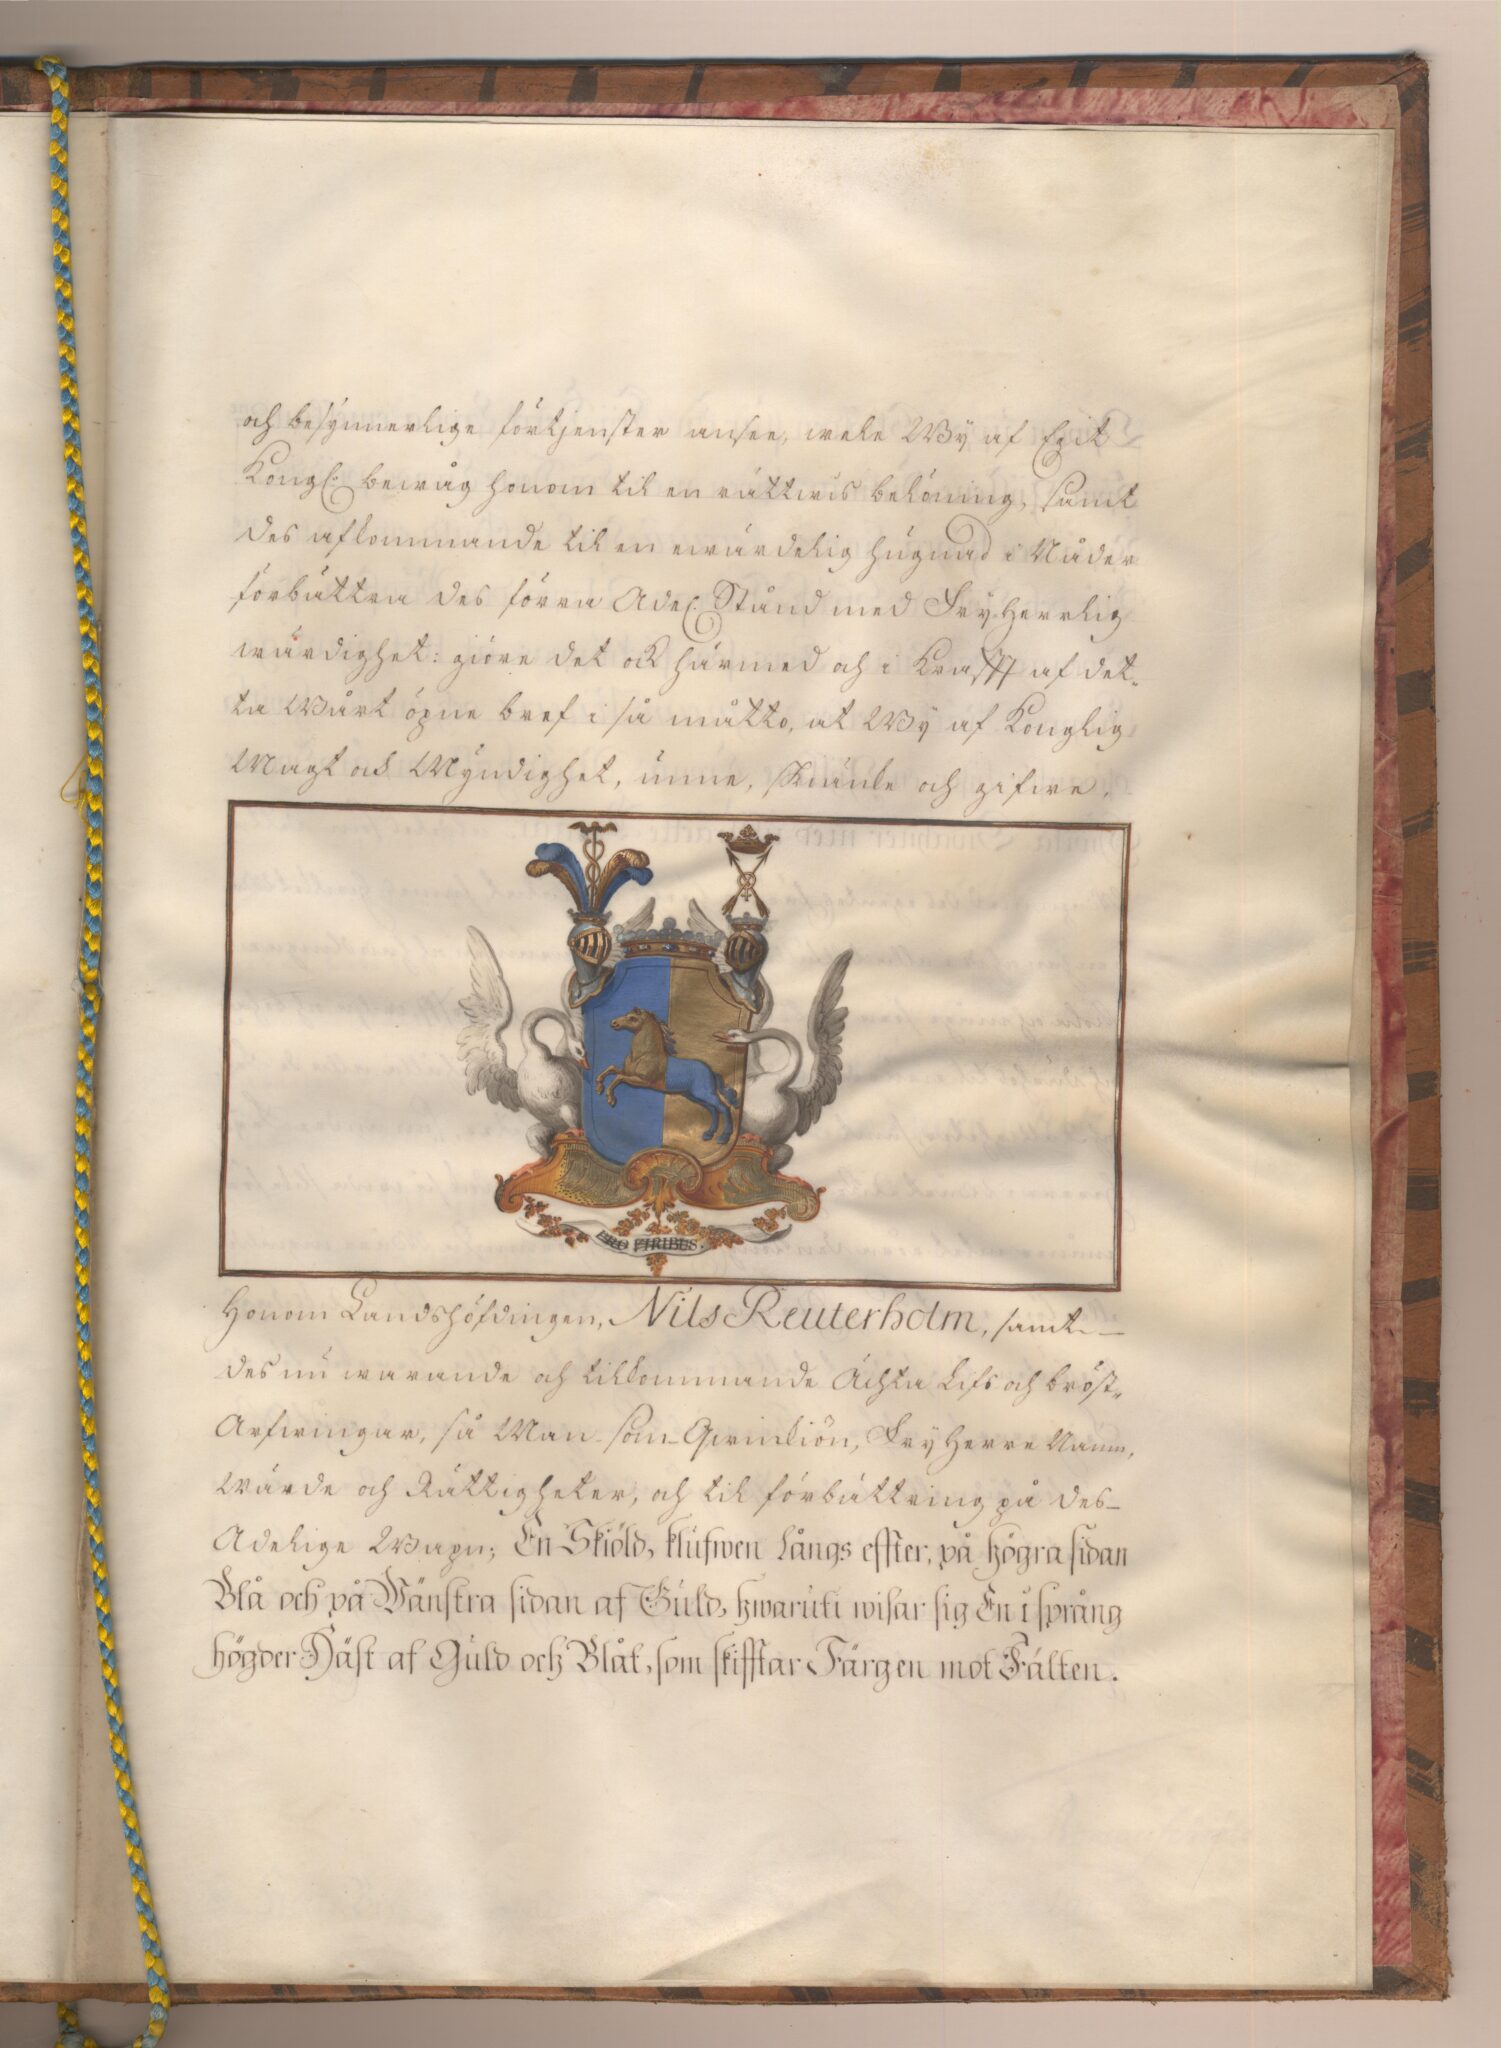 och besynnerlige förtjenster ansee, wele Wy af Egit
Kongl: bewåg honom til en rättwis belöning, samt
des afkommande til en ewärdelig hugnad i Nåder
förbättra des förra Adel. Stånd med FryHerrlig
wärdighet: giöre det ock härmed och i Krafft af det-
ta Wårt öpne bref i så måtto, at Wy af Konglig
Magt och Myndighet, unne, skänke och gifwe,
PRO VIRIBUS.
Honom Landshöfdingen, Nils Reuterholm, samt
des nu warande och tilkommande Ächta Lifs och bröst-
Arfwingar, så Man som Qwinkiön, FryHerre Namn,
Wärde och Rättigheter, och til förbättring på des
Adelige Wapn; En Skiöld, klufwen långs effter, på högra sidan
Blå och på Vänstra sidan af Guld, hwaruti wisar sig En i språng
högder Häst af Guld och Blåt, som skifftar Färgen mot Fälten.